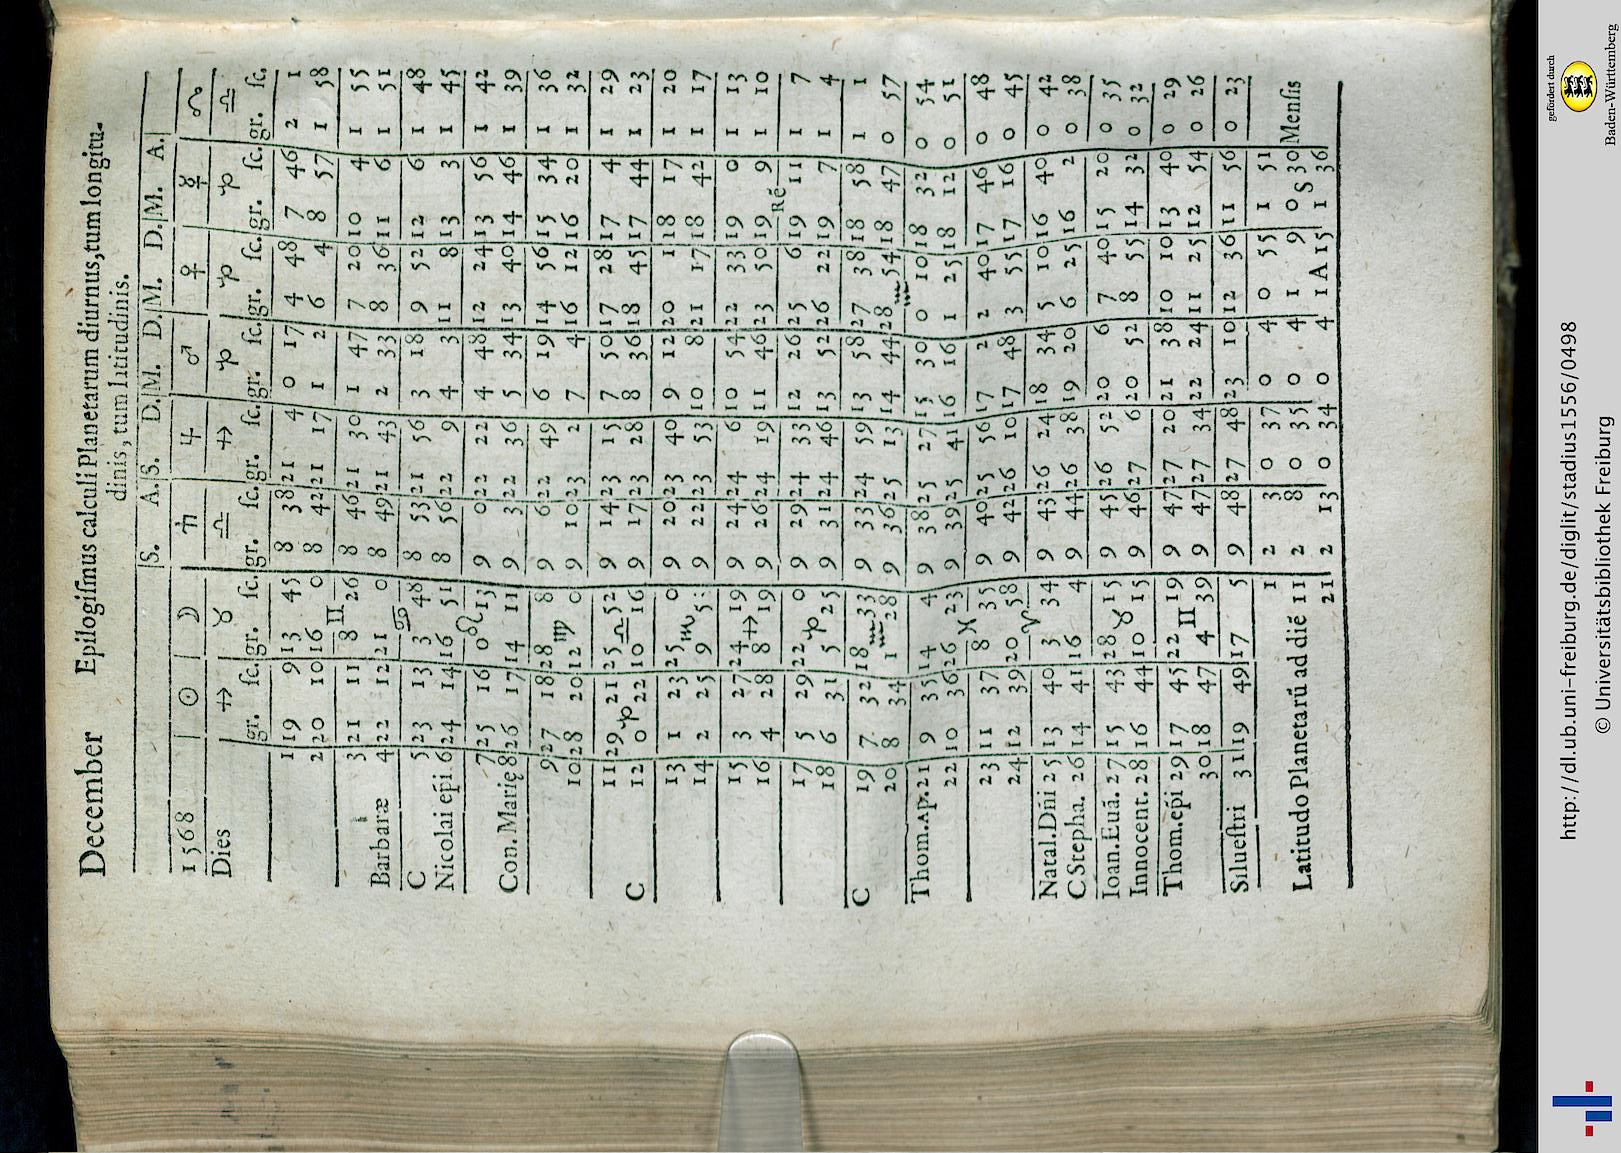 December Epilogismus calculi Planetarum diurnus, tum longitu-
dinis, tum latitudinis.
S. A. S. D. M. D. M. D. M. A.
1568 ☉ ☽ ♄ ♃ ♂ ♀ ☿ ☊
Dies ♐ ♉ ♎ ♐ ♑ ♑ ♑ ♎
gr. sc. gr. sc. gr. sc. gr. sc. gr. sc. gr. sc. gr. sc. gr. sc.
1 19 9 13 45 8 38 21 4 0 17 4 48 7 46 2 1
2 20 10 16 0 8 42 21 17 1 2 6 4 8 57 1 58
3 21 11 8 ♊ 26 8 46 21 30 1 47 7 20 10 4 1 55
Barbaræ 4 22 12 21 0 8 49 21 43 2 33 8 36 11 6 1 51
C 5 23 13 3 ♋ 48 8 53 21 56 3 18 9 52 12 6 1 48
Nicolai epi 6 24 14 16 51 8 56 22 9 4 3 11 8 13 3 1 45
7 25 16 0 ♌ 13 9 0 22 22 4 48 12 24 13 56 1 42
Con. Marię 8 26 17 14 11 9 3 22 36 5 34 13 40 14 46 1 39
9 27 18 28 8 9 6 22 49 6 19 14 56 15 34 1 36
10 28 20 12 ♍ 0 9 10 23 2 7 4 16 12 16 20 1 32
11 29 21 25 52 9 14 23 15 7 50 17 28 17 4 1 29
C 12 0 ♑ 22 10 ♎ 16 9 17 23 28 8 36 18 45 17 44 1 23
13 1 23 25 0 9 20 23 40 9 12 20 1 18 17 1 20
14 2 25 9 ♏ 9 22 23 53 10 8 21 17 18 42 1 17
15 3 27 24 19 9 24 24 6 10 54 22 33 19 0 1 13
16 4 28 8 ♐ 19 9 26 24 19 11 46 23 50 19 9 1 10
Ré
17 5 29 22 0 9 29 24 33 12 26 25 6 19 11 1 7
18 6 31 5 ♑ 25 9 31 24 46 13 52 26 22 19 7 1 4
C 19 7 32 18 33 9 33 24 59 13 58 27 38 18 58 1 1
20 8 34 1 ♒ 28 9 36 25 13 14 44 28 54 18 47 0 57
Thom. Ap. 21 9 35 14 4 9 38 25 27 15 30 0 ♒ 10 18 32 0 54
22 10 36 26 23 9 39 25 41 16 16 1 25 18 12 0 51
23 11 37 8 ♓ 35 9 40 25 56 17 2 2 40 17 46 0 48
24 12 39 20 58 9 42 26 10 17 48 3 55 17 16 0 45
Natal. Dñi 25 13 40 3 ♈ 34 9 43 26 24 18 34 5 10 16 40 0 42
C Stepha. 26 14 41 16 4 9 44 26 38 19 20 6 25 16 2 0 38
Ioan. Euã. 27 15 43 28 15 9 45 26 52 20 6 7 40 15 20 0 35
Innocent. 28 16 44 10 ♉ 15 9 46 27 6 20 52 8 55 14 32 0 32
Thom. epi 29 17 45 22 19 9 47 27 20 21 38 10 10 13 40 0 29
30 18 47 4 ♊ 39 9 47 27 34 22 24 11 25 12 54 0 26
Siluestri 31 19 49 17 5 9 48 27 48 23 10 12 36 11 56 0 23
1 2 3 0 37 0 4 0 55 1 51
Latitudo Planetarũ ad diẽ 11 2 8 0 35 0 4 1 9 0 S 30 Mensis
21 2 13 0 34 0 4 1 A 15 1 36
gefördert durch
Baden-Württemberg
http://dl.ub.uni-freiburg.de/diglit/stadius1556/0498
© Universitätsbibliothek Freiburg